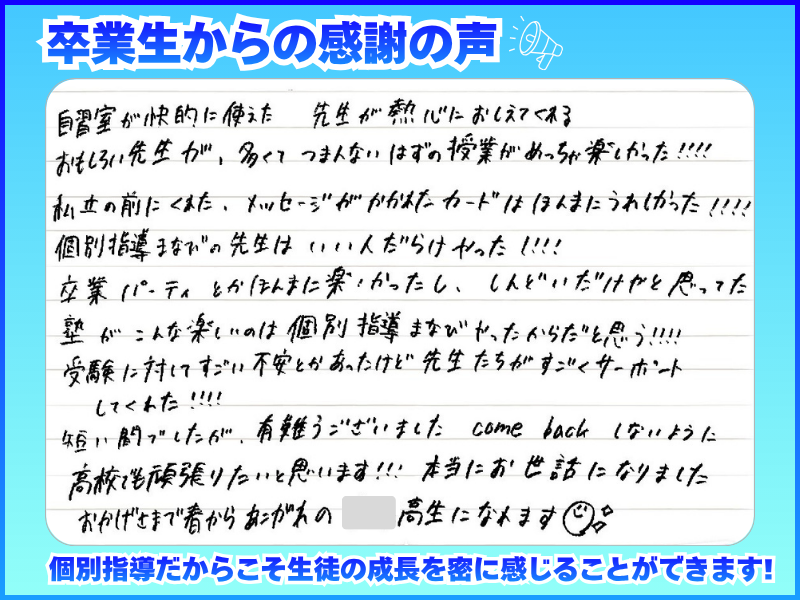 卒業生からの感謝の声
自習室が快的に使えた 先生が熱心におしえてくれる
おもしろい先生が、多くて つまんないはずの授業がめっちゃ楽しかった!!!!
私立の前にくれた、メッセージがかかれたカードはほんまにうれしかった!!!!
個別指導まなびの先生は いい人だらけやった!!!!
卒業パーティとかほんまに楽しかったし、しんどいだけかと思ってた
塾がこんな楽しいのは個別指導まなびやったからだと思う!!!!
受験に対してすごい不安とかあったけど先生たちがすごくサーポート
してくれた!!!!
短い間でしたが、有難うございました come back しないように
高校でも頑張りたいと思います!!! 本当にお世話になりました
おかげさまで春からあこがれの 高生になれます
個別指導だからこそ生徒の成長を密に感じることができます!